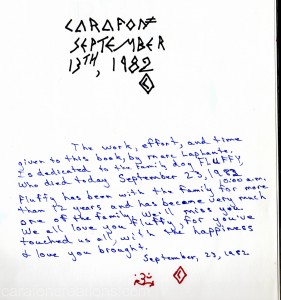 CARAFON
SEPTEMBER
13TH, 1982
The work, effort, and time
given to this book, by marc Laphante.
Is dedicated to the family dog FLUFFY,
Who died today September 23, 1982
10:00 a.m.
Fluffy has been with the family for more
than 12 years and has become very much
one of the family. We'll miss you.
We all love you fluffy, for you've
touched us all, with the happiness
& love you brought.
September, 23, 1982